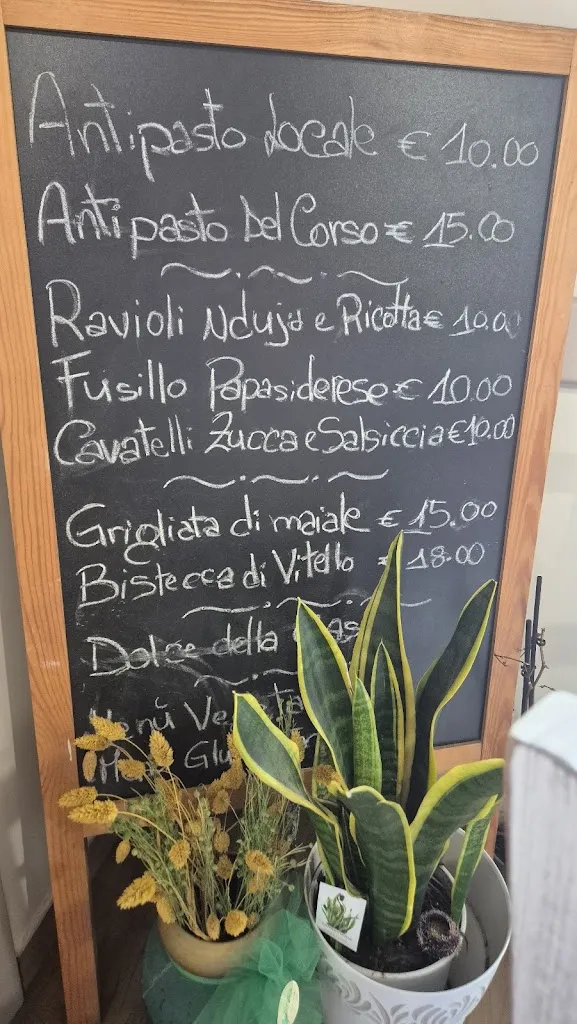 Antipasto Locale € 10.00
Antipasto Del Corso € 15.00
Ravioli Nduja e Ricotta € 10.00
Fusillo Papasiderese € 10.00
Cavatelli Zucca e Salsiccia € 10.00
Grigliata di maiale € 15.00
Bistecca di Vitello € 18.00
Dolce della
Menú